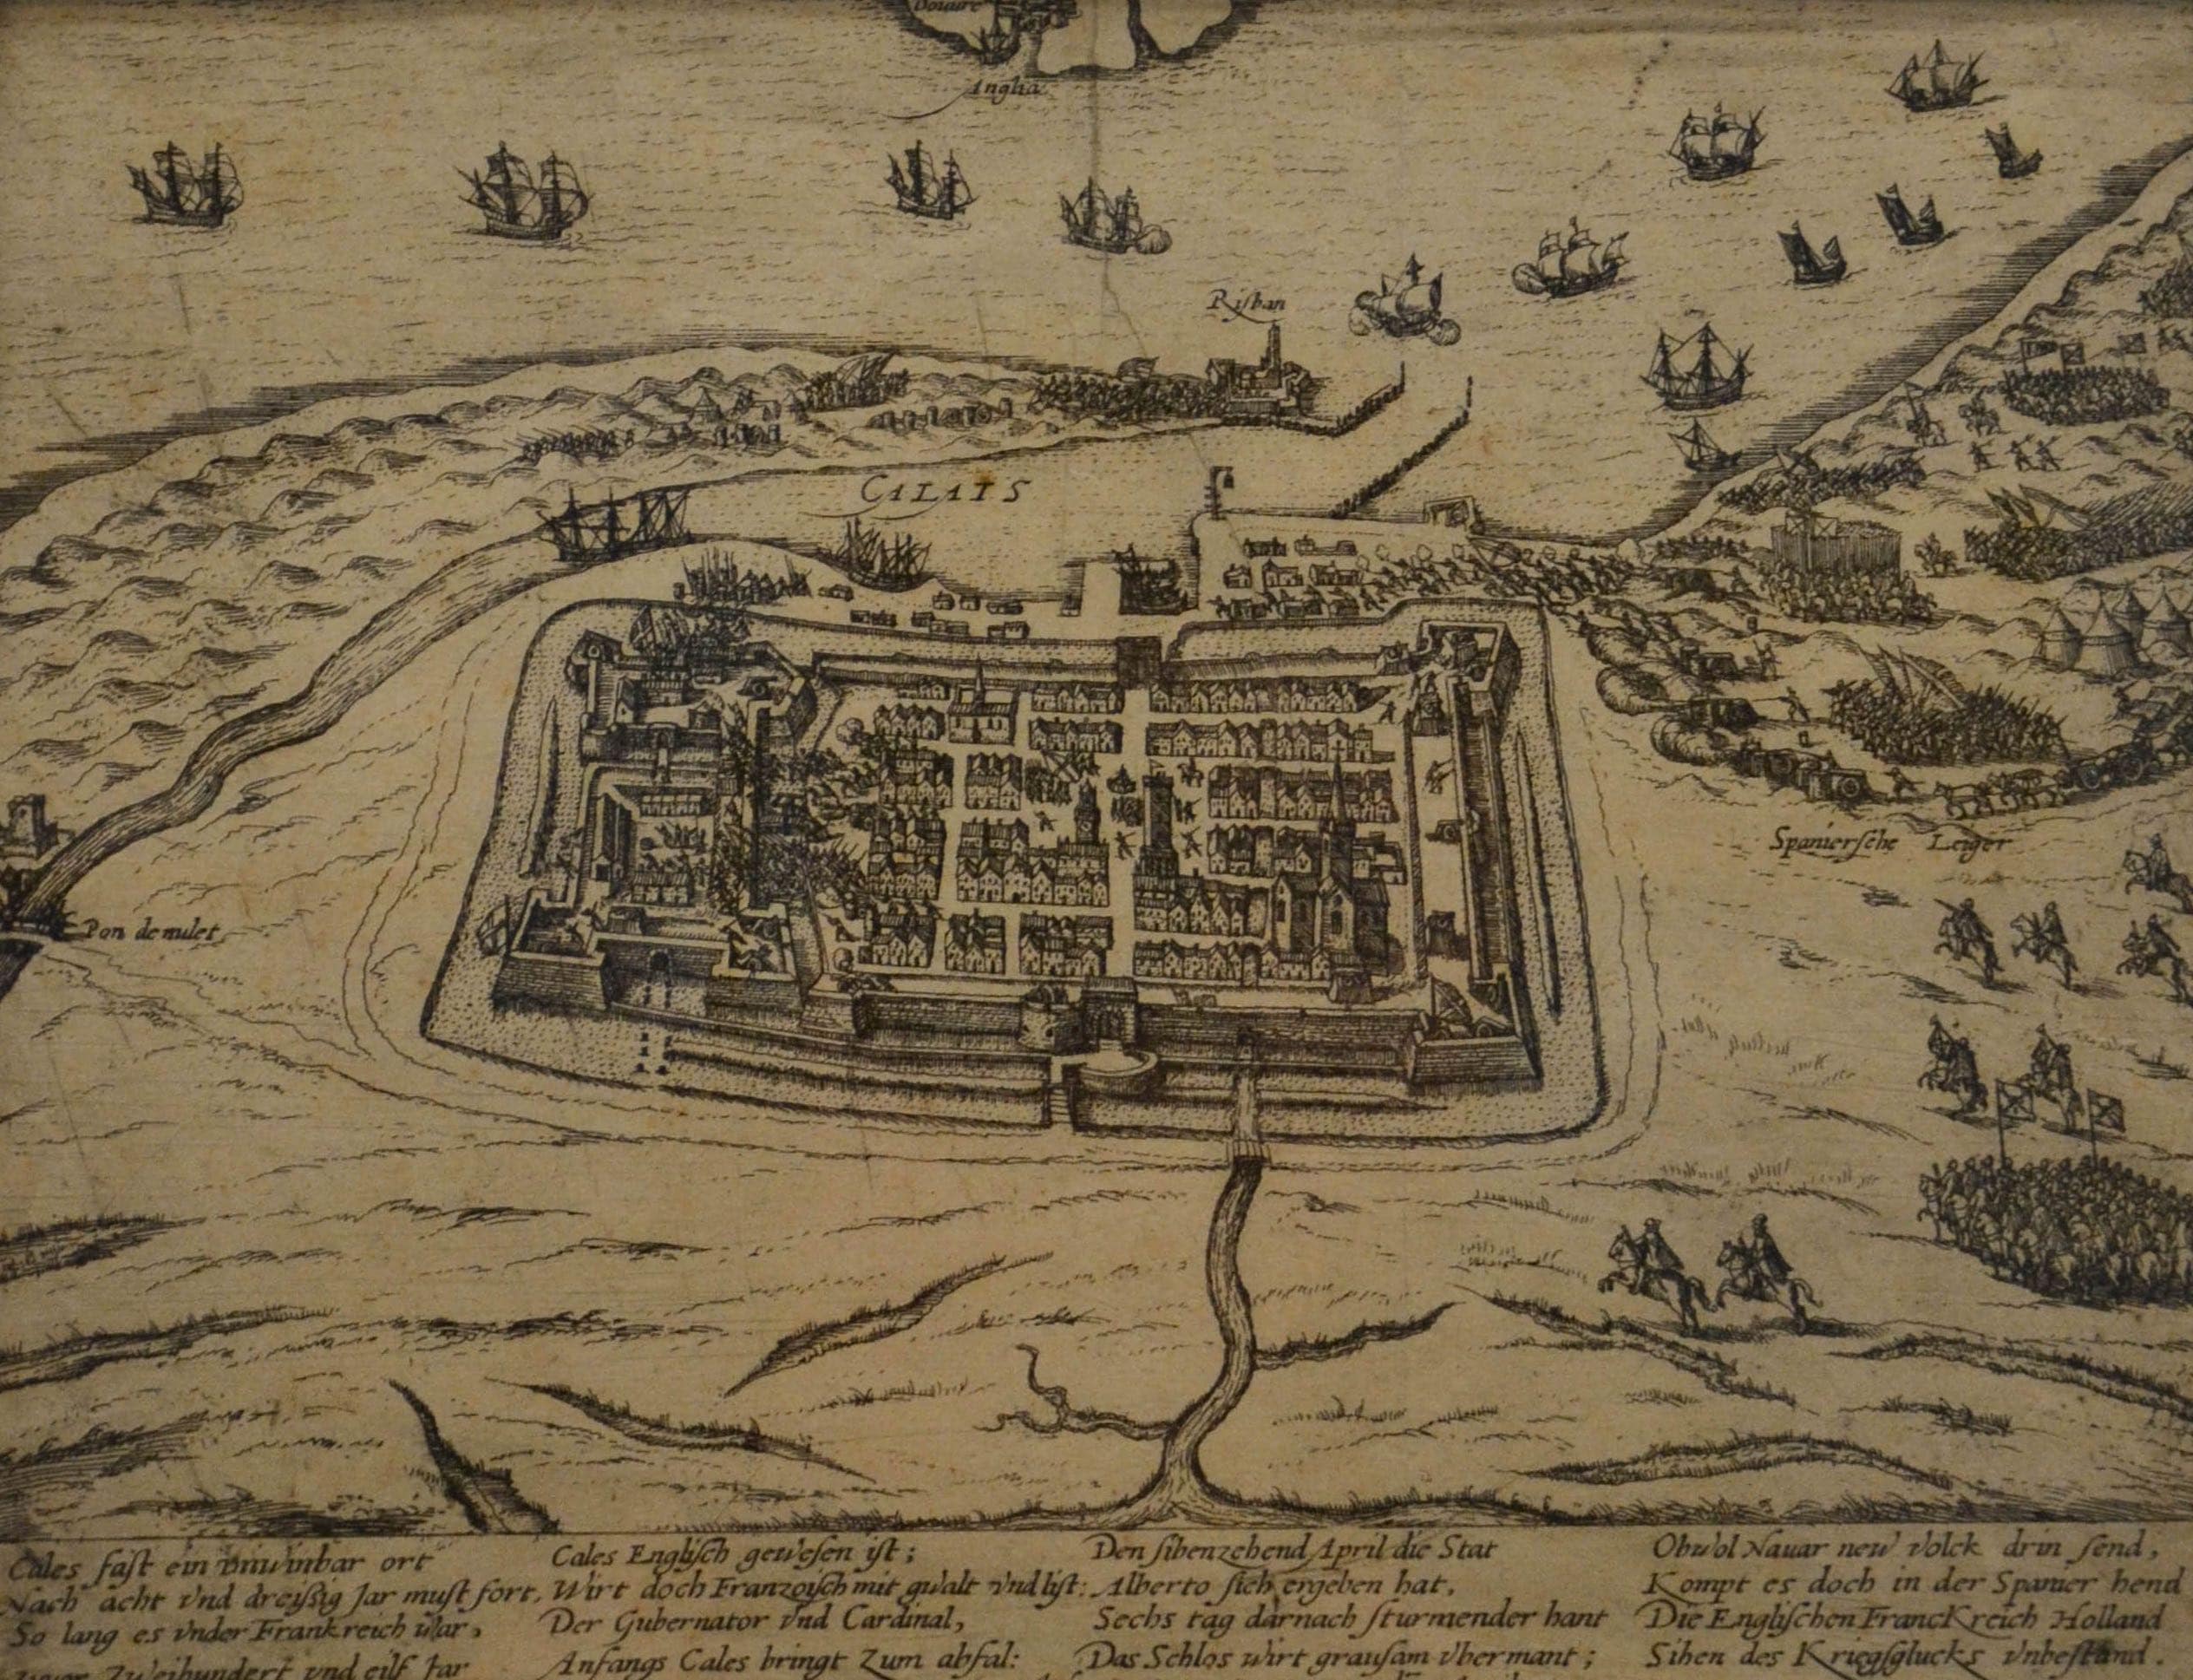 Douure
Anglia
Risban
CALAIS
Spaniersche Leiger
Pon de nulet
Cales fast ein vnwinbar ort
Nach acht vnd dreisig Jar must fort,
So lang es vnder Frankreich war,
zuvor Zweihundert vnd eilf Jar
Cales Englisch gewesen ist;
Wirt doch Franzoisch mit gwalt vnd list:
Der Gubernator vnd Cardinal,
Anfangs Cales bringt Zum abfal:
Den sibenzehend April die Stat
Alberto sich ergeben hat,
Sechs tag darnach sturmender hant
Das Schlos wirt grausam vbermant;
Obwol Nauar new volck drin send,
Kompt es doch in der Spanier hend
Die Englischen Franckreich Holland
Sihen des Kriegsglucks vnbestand.